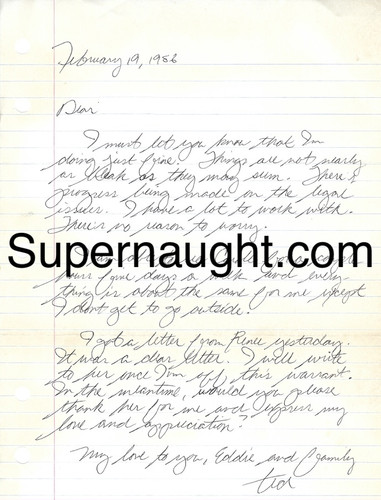 February 19, 1986
Dear
I must let you know that I'm
doing just fine. Things are not nearly
as bleak as they may seem. There's
progress being made on the legal
issues. I have a lot to work with.
There's no reason to worry.
Supernaught.com
days a week and every-
thing is about the same for me except
I don't get to go outside.
I got a letter from Renee yesterday.
It was a dear letter. I will write
to her once I'm off this warrant.
In the meantime, would you please
thank her for me and express my
love and appreciation?
My love to you, Eddie and family
ted